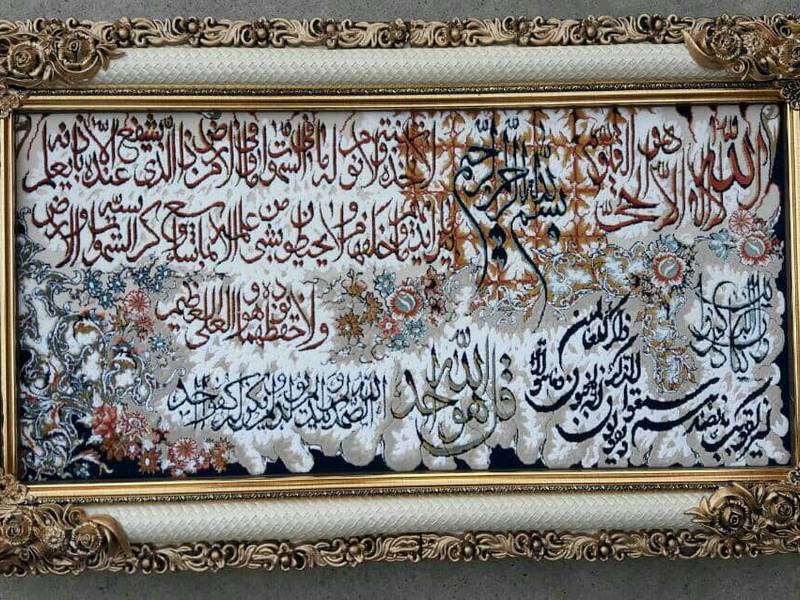 بسم الله الرحمن الرحيم
الله لا اله الا هو الحي القيوم
لا تأخذه سنة ولا نوم له ما في السموات وما في الارض من ذا الذي يشفع عنده الا باذنه يعلم
ما بين ايديهم وما خلفهم ولا يحيطون بشيء من علمه الا بما شاء وسع كرسيه السموات والارض
ولا يؤده حفظهما وهو العلي العظيم
وان يكاد الذين كفروا
ليزلقونك بابصارهم لما سمعوا الذكر ويقولون انه لمجنون وما هو الا ذكر للعالمين
قل هو الله احد
الله الصمد لم يلد ولم يولد ولم يكن له كفوا احد